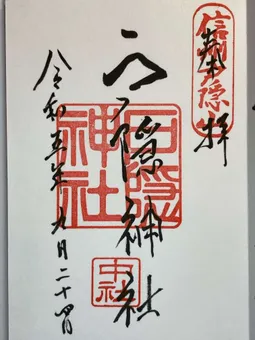 奉拝
信州戸隠
戸隠神社
戸隠神社
中社
令和五年九月二十四日